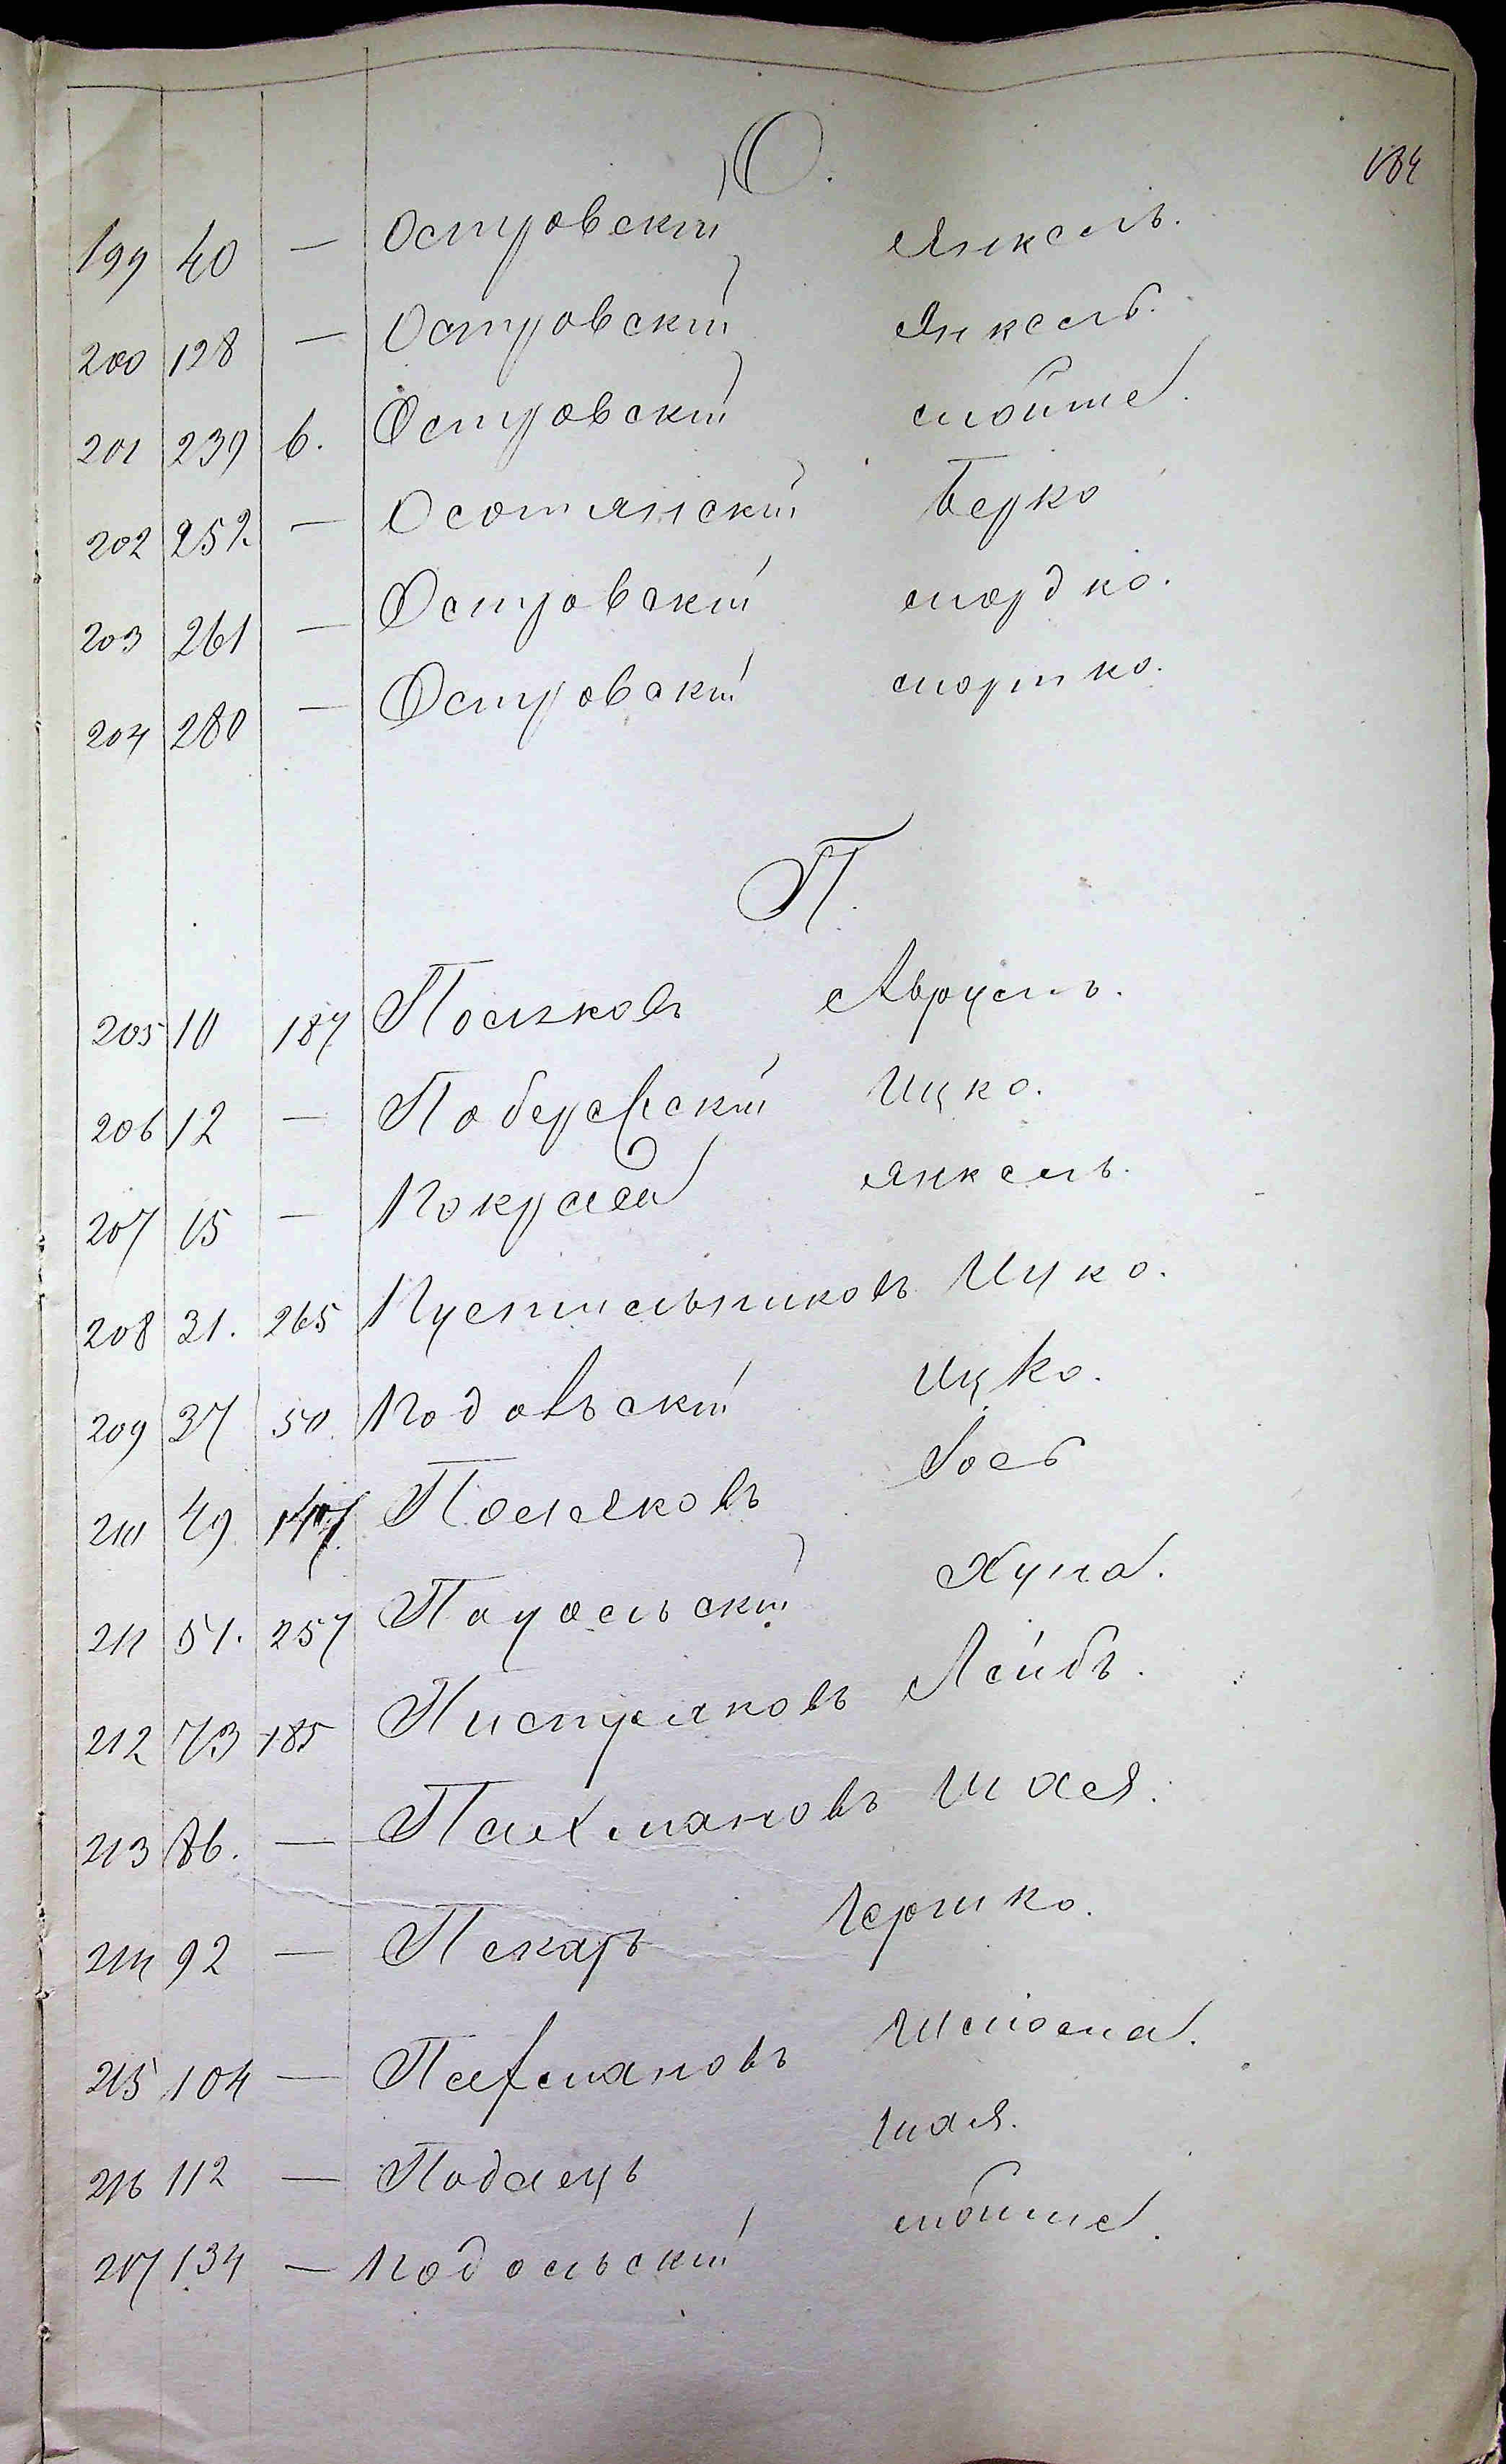 О.
184
199 40 — Островскій Янкель.
200 128 — Островскій Янкель.
201 239 6. Островскій Мойше.
202 252 — Осотянскій Берко
203 261 — Островскій Мордко.
204 280 — Островскій Мортко.
П.
205 10 187 Поляковъ Аврумъ.
206 12 — Побережскій Ицко.
207 15 — Покраса Янкель.
208 31. 265 Пустильниковъ Ицко.
209 37 50. Подольскій Ицко.
210 49 Поляковъ Іось
211 51. 257 Подольскій Хуна.
212 73 185 Пистуяковъ Лейбъ.
213 86. — Пахмановъ Шая.
214 92 — Пекарь Гершко.
215 104 — Пахмановъ Шелома.
216 112 — Подлецъ Шая.
217 134 — Подольскій Мойше.